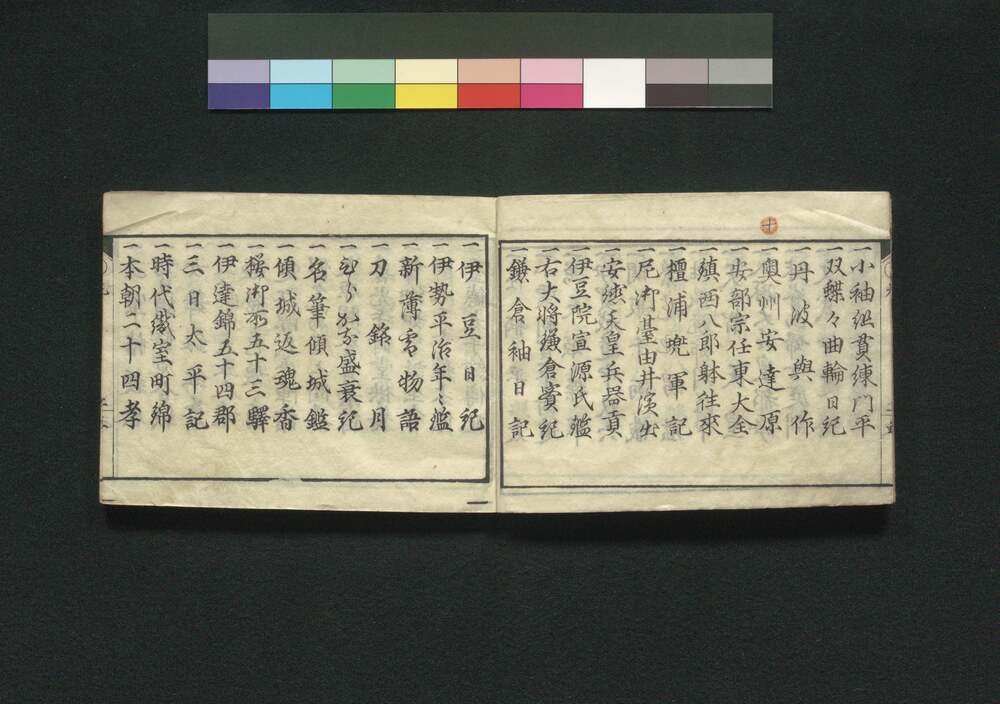 十
一小袖組貫練門平
一双蝶々曲輪日紀
一丹波與作
一奥州安達原
一安部宗任東大全
一鎮西八郎躰往來
一檀浦兜軍記
一尼御臺由井濱出
一安徳天皇兵器貢
一伊豆院宣源氏鑑
一右大将鎌倉實紀
一鎌倉袖日記
一伊豆日紀
一伊勢平治年々鑑
一新薄雪物語
一刀銘月
一ひらかな盛衰紀
一名筆傾城鑑
一傾城返魂香
一桜御所五十三驛
一伊達錦五十四郡
一三日太平記
一時代織室町錦
一本朝二十四孝